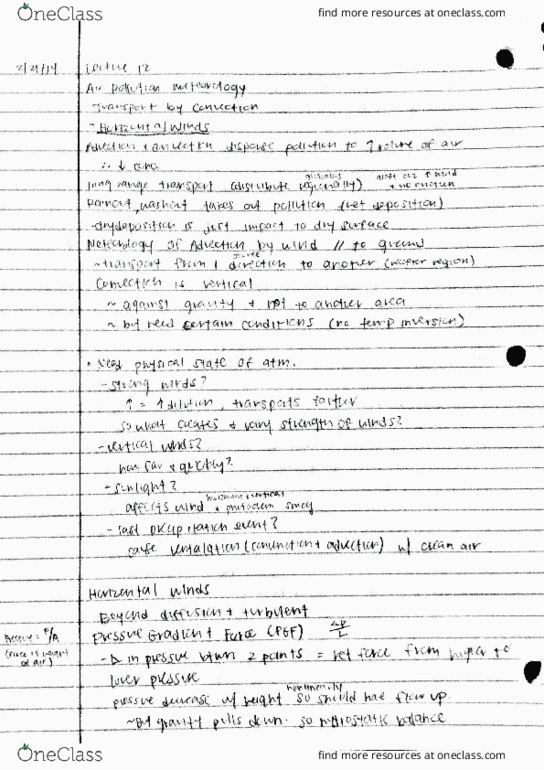 OneClass
find more resources at oneclass.com
2/24/14 Lecture 12
Air pollution meteorology
Transport by convection
- Horizontal winds
Advection + convection disperse pollution to ↑ volume of air
∴ ↓ conc
long range transport (distribute regionally) + no friction
Rainout, washout takes out pollution (wet deposition)
- dry deposition is just impact to dry surface
Meteorology of Advection by wind // to ground
~ transport from 1 direction to another (receptor region)
Convection is vertical
~ against gravity + not to another area
~ but need certain conditions (no temp inversion)
• Need physical state of atm.
- strong winds?
↑ = ↑ dilution, transports farther
so what creates + vary strength of winds?
- vertical winds?
how far + quickly?
- sunlight?
horizontal + vertical
affects wind + photochem smog
- last precipitation event?
cause ventalation (convection + advection) w/ clean air
Horizental winds
Beyond diffusion + turbulent
Pressure = F/A
Pressure Gradient Force (PGF) ΔP/L
(Force is weight of air)
- Δ in pressure btwn 2 points = net force from higher to
lower pressure
nonlinearly
pressure decrease w/ height so should have flow up
~ But gravity pulls down. so hydrostatic balance
OneClass
find more resources at oneclass.com